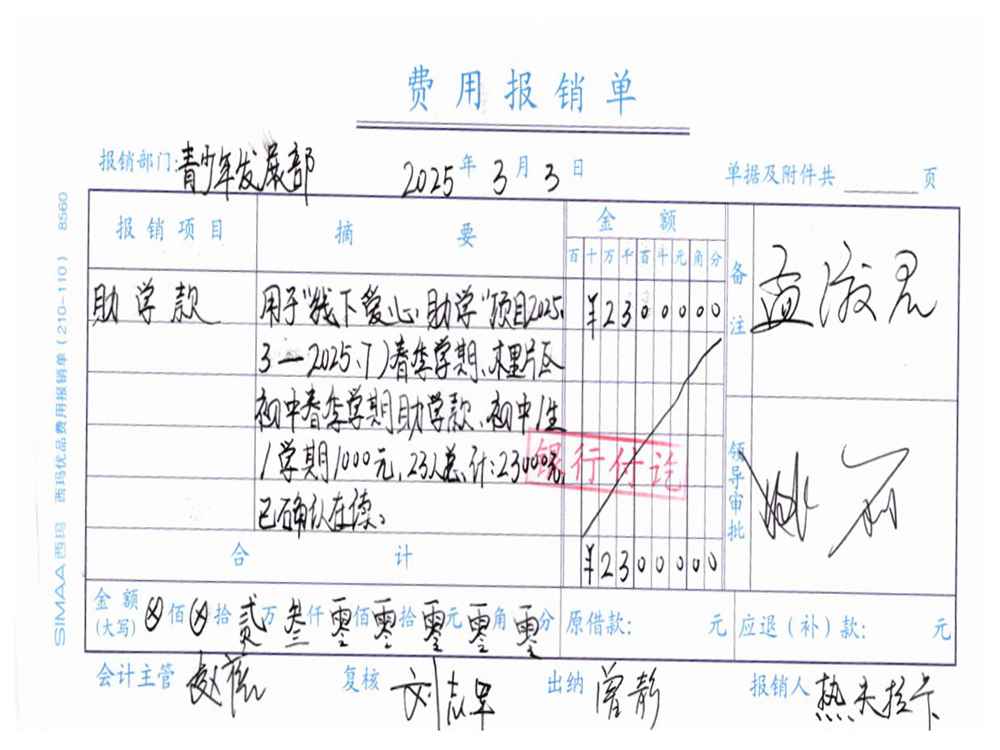 费用报销单
报销部门:青少年发展部 2025年3月3日 单据及附件共 页
报销项目 摘要 金额 备注
百十万千百斗元角分
助学款 用于"线下爱心助学"项目2025.
¥2300000
3—2025.7)春季学期、木里片区
初中春季学期助学款、初中1生
1学期1000元,23人总计:23000元,
已确认在读。
银行付讫
领导审批
合计 ¥2300000
金额(大写) ⊗佰⊗拾贰万叁仟零佰零拾零元零角零分 原借款: 元 应退(补)款: 元
会计主管 复核 刘志军 出纳 曾静 报销人 热夫拉卡
SIMAA西玛 西玛优品费用报销单(210-110) 8560